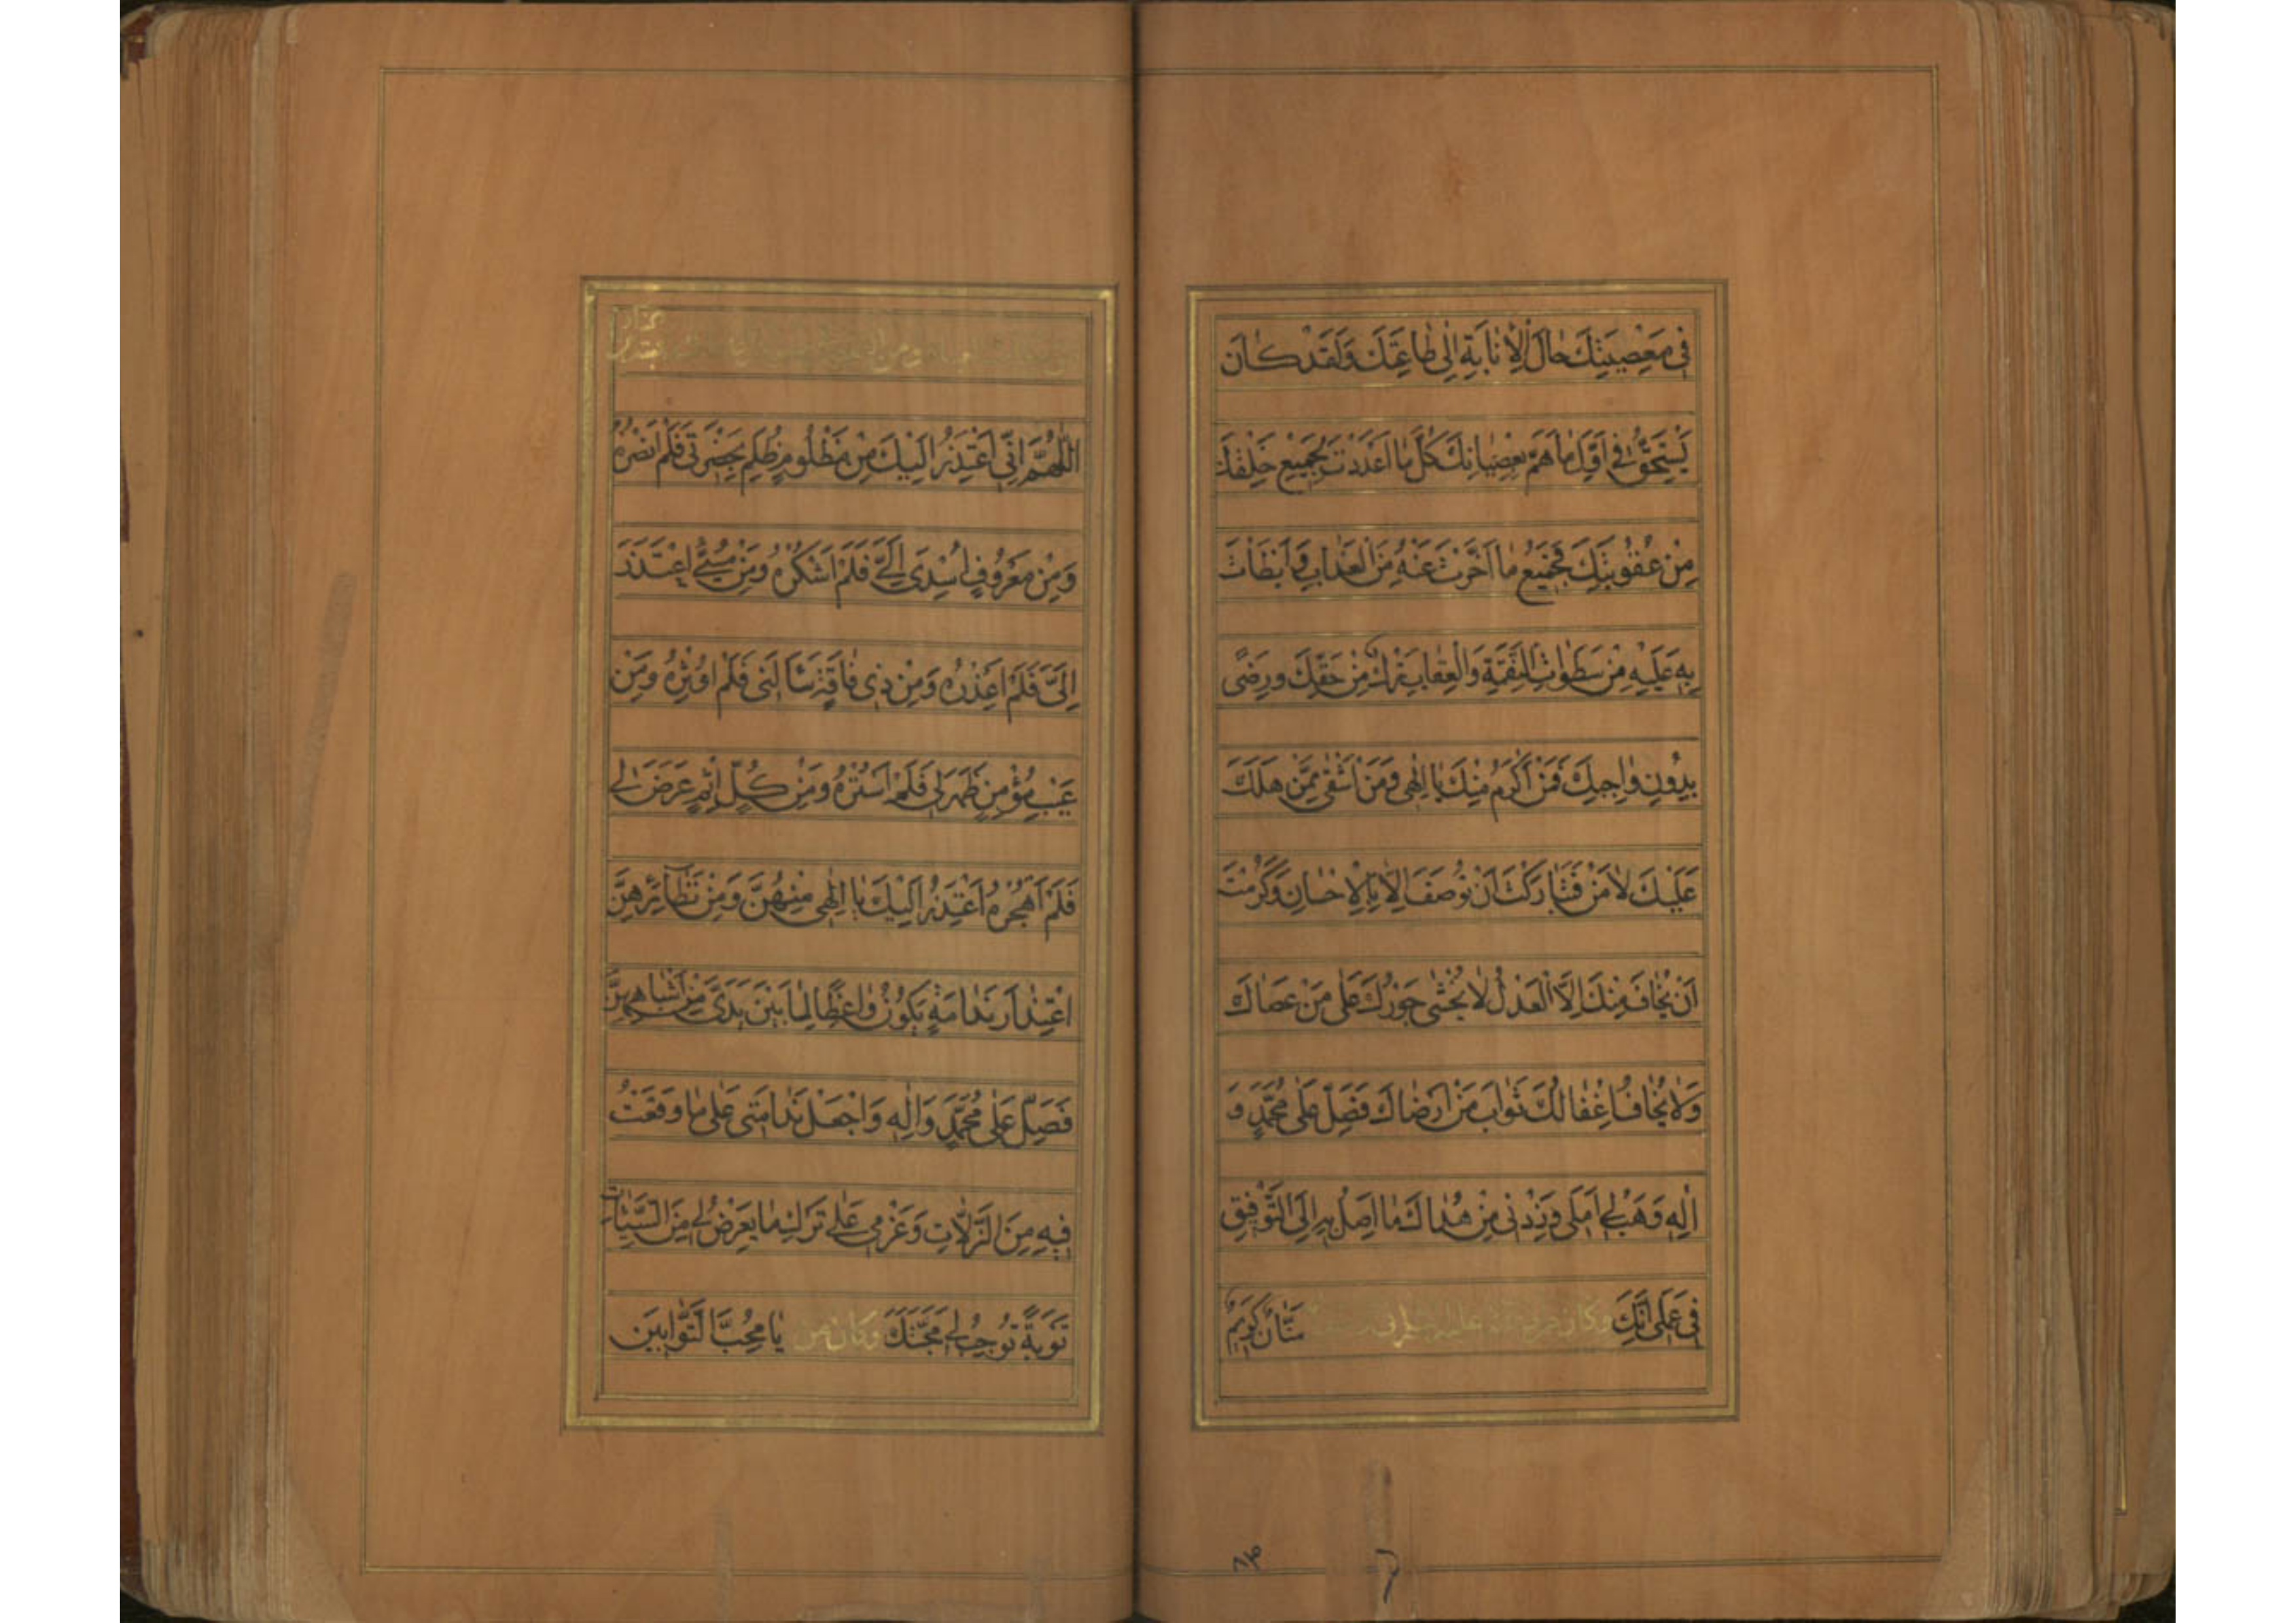 فِى مَعْصِيَتِكَ حَالَ الْاِنَابَةِ اِلٰى طَاعَتِكَ وَلَقَدْ كَانَ
يَسْتَحِقُّ فِى اَوَّلِ مَا هَمَّ بِعِصْيَانِكَ كُلَّ مَا اَعْدَدْتَ لِجَمِيْعِ خَلْقِكَ
مِنْ عُقُوبَتِكَ فَجَمِيْعُ مَا اَخَّرْتَ عَنْهُ مِنَ الْعَذَابِ وَاَبْطَاْتَ
بِهٖ عَلَيْهِ مِنْ سَطَوَاتِ النَّقِمَةِ وَالْعِقَابِ تَرْكٌ مِنْ حَقِّكَ وَرِضًى
بِدُونِ وَاجِبِكَ فَمَنْ اَكْرَمُ مِنْكَ يَا اِلٰهِى وَمَنْ اَشْقٰى مِمَّنْ هَلَكَ
عَلَيْكَ لَا مَنْ فَتَبَارَكْتَ اَنْ تُوصَفَ اِلَّا بِالْاِحْسَانِ وَكَرُمْتَ
اَنْ يُخَافَ مِنْكَ اِلَّا الْعَدْلُ لَا يُخْشٰى جَوْرُكَ عَلٰى مَنْ عَصَاكَ
وَلَا يُخَافُ اِغْفَالُكَ ثَوَابَ مَنْ اَرْضَاكَ فَصَلِّ عَلٰى مُحَمَّدٍ وَ
اٰلِهٖ وَهَبْ لِى اَمَلِى وَزِدْنِى مِنْ هُدَاكَ مَا اَصِلُ بِهٖ اِلَى التَّوْفِيقِ
فِى عَمَلِى اِنَّكَ مَنَّانٌ كَرِيْمٌ وكان من دعائه عليه السلام فى
اَللّٰهُمَّ اِنِّى اَعْتَذِرُ اِلَيْكَ مِنْ مَظْلُومٍ ظُلِمَ بِحَضْرَتِى فَلَمْ اَنْصُرْهُ
وَمِنْ مَعْرُوفٍ اُسْدِىَ اِلَىَّ فَلَمْ اَشْكُرْهُ وَمِنْ مُسِىْءٍ اعْتَذَرَ
اِلَىَّ فَلَمْ اَعْذِرْهُ وَمِنْ ذِى فَاقَةٍ سَاَلَنِى فَلَمْ اُوثِرْهُ وَمِنْ
عَيْبِ مُؤْمِنٍ ظَهَرَ لِى فَلَمْ اَسْتُرْهُ وَمِنْ كُلِّ اِثْمٍ عَرَضَ لِى
فَلَمْ اَهْجُرْهُ اَعْتَذِرُ اِلَيْكَ يَا اِلٰهِى مِنْهُنَّ وَمِنْ نَظَائِرِهِنَّ
اعْتِذَارَ نَدَامَةٍ يَكُونُ وَاعِظًا لِمَا بَيْنَ يَدَىَّ مِنْ اَشْبَاهِهِنَّ
فَصَلِّ عَلٰى مُحَمَّدٍ وَاٰلِهٖ وَاجْعَلْ نَدَامَتِى عَلٰى مَا وَقَعْتُ
فِيهِ مِنَ الزَّلَّاتِ وَعَزْمِى عَلٰى تَرْكِ مَا يَعْرِضُ لِى مِنَ السَّيِّئَاتِ
تَوْبَةً تُوجِبُ لِى مَحَبَّتَكَ يَا مُحِبَّ التَّوَّابِيْنَ وكان من